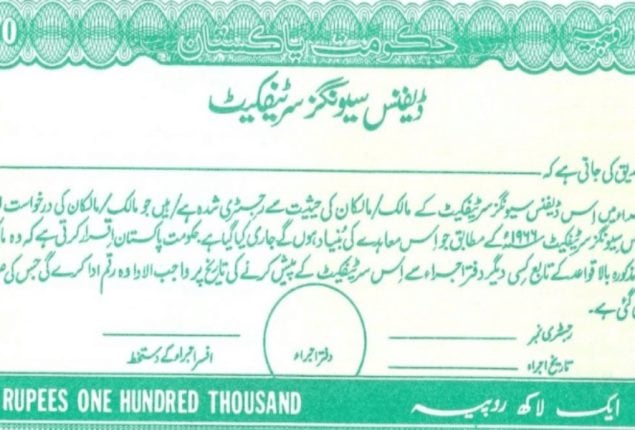 0
حکومت پاکستان
روپیہ
ڈیفنس سیونگز سرٹیفکیٹ
کی جاتی ہے کہ
میں اس ڈیفنس سیونگز سرٹیفکیٹ کے مالک/مالکان کی حیثیت سے رجسٹری شدہ ہے/ہیں جو مالک/مالکان کی درخواست
سیونگز سرٹیفکیٹ ۱۹۶۶ء کے مطابق جو اس معاہدے کی بنیاد ہوں گے جاری کیا گیا ہے حکومت پاکستان اقرار کرتی ہے کہ وہ
بالا قواعد کے تابع کسی دیگر دفتر اجراء سے اس سرٹیفکیٹ کے پیش کرنے کی تاریخ پر واجب الادا وہ رقم ادا کرے گی جس کی
گئی ہے۔
رجسٹری نمبر
تاریخ اجراء
دفتر اجراء
افسر اجراء کے دستخط
RUPEES ONE HUNDRED THOUSAND
ایک لاکھ روپیہ